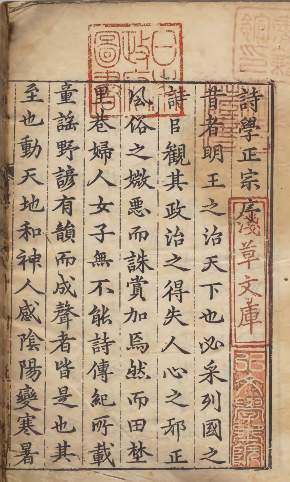 詩學正宗序
昔者明王之治天下也必采列國之
詩官觀其政治之得失人心之邪正
風俗之媺悪而誅賞加焉然而田埜
里巷婦人女子無不能詩傳紀所載
童謡野諺有韻而成聲者皆是也其
至也動天地和神人感陰陽變寒暑
淺草文庫
日本
政府
圖書
弘文學士院